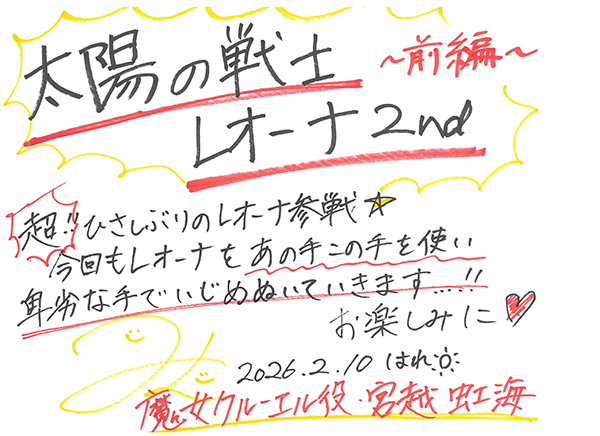 太陽の戦士
～前編～
レオーナ2nd
超!!ひさしぶりのレオーナ参戦☆
今回もレオーナをあの手この手を使い
卑劣な手でいじめぬいていきます…!!
お楽しみに♥
2026.2.10 はれ
魔女クルーエル役・宮越虹海